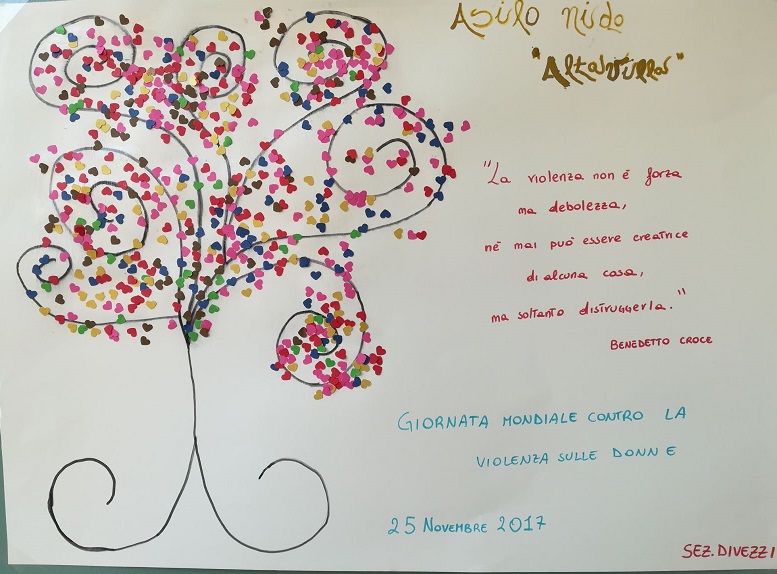 Asilo nido
"Altavilla"
"La violenza non è forza
ma debolezza,
nè mai può essere creatrice
di alcuna cosa,
ma soltanto distruggerla."
BENEDETTO CROCE
GIORNATA MONDIALE CONTRO LA
VIOLENZA SULLE DONNE
25 NOVEMBRE 2017
SEZ. DIVEZZI